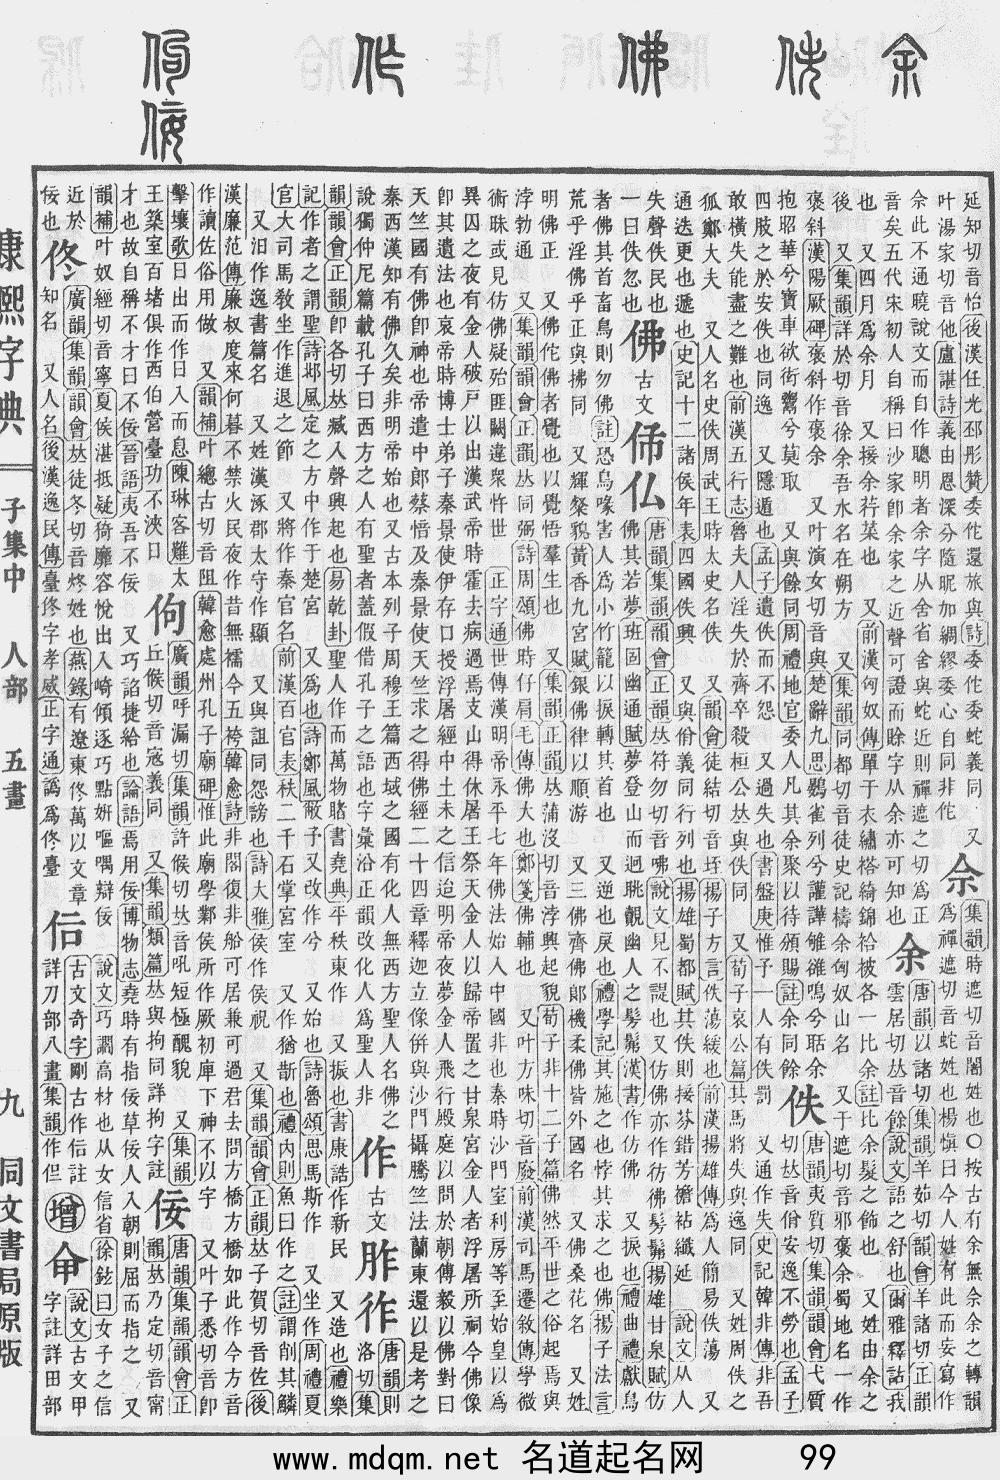 余 佚 佛 作 佝 佞
延知切音怡後漢任光邳彤贊委佗還旅與詩委佗委蛇義同 又
叶湯家切音他盧諶詩義由恩深分隨昵加綢繆委心自同非佗
佘
集韻時遮切音闍姓也○按古有余無佘余之轉韻
爲禪遮切音蛇姓也楊愼曰今人姓有此而妄寫作
佘此不通曉說文而自作聰明者余字从舍省舍與蛇近則禪遮之切爲正
音矣五代宋初人自稱曰沙家卽余家之近聲可證而賒字从余亦可知也
余
唐韻以諸切集韻羊茹切韻會羊諸切正韻
雲居切𠀤音餘說文語之舒也爾雅釋詁我
也 又四月爲余月 又接余荇菜也 又前漢匈奴傳單于衣繡袷綺錦袷被各一比余註比余髮之飾也 又姓由余之
後 又集韻詳於切音徐余吾水名在朔方 又集韻同都切音徒史記檮余匈奴山名 又于遮切音邪褒余蜀地名一作
褒斜漢陽厥碑褒斜作褒余 又叶演女切音與楚辭九思鷃雀列兮讙譁雊雒鳴兮聒余
抱昭華兮寶車欲衒鬻兮莫取 又與餘同周禮地官委人凡其余聚以待頒賜註余同餘
佚
唐韻夷質切集韻韻會弋質
切𠀤音佾安逸不勞也孟子
四肢之於安佚也同逸 又隱遁也孟子遺佚而不怨 又過失也書盤庚惟予一人有佚罰 又通作失史記韓非傳非吾
敢橫失能盡之難也前漢五行志魯夫人淫失於齊卒殺桓公𠀤與佚同 又荀子哀公篇其馬將失與逸同 又姓周佚之
狐鄭大夫 又人名史佚周武王時太史名佚 又韻會徒結切音垤揚子方言佚蕩緩也前漢揚雄傳爲人簡易佚蕩 又
通迭更也遞也史記十二諸侯年表四國佚興 又與佾義同行列也揚雄蜀都賦其佚則接芬錯芳襜袩纖延 說文从人
失聲佚民也
一曰佚忽也
佛 古文 仏
唐韻集韻韻會正韻𠀤符勿切音咈說文見不諟也 又仿佛亦作彷彿髣髴揚雄甘泉賦仿
佛其若夢班固幽通賦夢登山而迥眺覿幽人之髣髴漢書作仿佛 又捩也禮曲禮獻鳥
者佛其首畜鳥則勿佛註恐鳥喙害人爲小竹籠以捩轉其首也 又逆也戾也禮學記其施之也悖其求之也佛揚子法言
荒乎淫佛乎正與拂同 又輝祭貌黃香九宮賦銀佛律以順游 又三佛齊佛郞機柔佛皆外國名 又佛桑花名 又姓
明佛正 又佛佗佛者覺也以覺悟羣生也 又集韻正韻𠀤蒲沒切音浡興起貌荀子非十二子篇佛然平世之俗起焉與
浡勃通 又集韻韻會正韻𠀤同弼詩周頌佛時仔肩毛傳佛大也鄭箋佛輔也 又叶方味切音廢前漢司馬遷敘傳學微
術昧或見仿佛疑殆匪闕違衆忤世 正字通世傳漢明帝永平七年佛法始入中國非也秦時沙門室利房等至始皇以爲
異囚之夜有金人破戸以出漢武帝時霍去病過焉支山得休屠王祭天金人以歸帝置之甘泉宮金人者浮屠所祠今佛像
卽其遺法也哀帝時博士弟子秦景使伊存口授浮屠經中土未之信迨明帝夜夢金人飛行殿庭以問於朝傅毅以佛對曰
天竺國有佛卽神也帝遣中郞蔡愔及秦景使天竺求之得佛經二十四章釋迦立像倂與沙門攝騰竺法蘭東還以是考之
秦西漢知有佛久矣非明帝始也又古本列子周穆王篇西域之國有化人無西方聖人名佛之
說獨仲尼篇載孔子曰西方之人有聖者蓋假借孔子之語也字彙沿正韻改化人爲聖人非
作 古文
唐韻則
洛切集
韻韻會正韻卽各切𠀤臧入聲興起也易乾卦聖人作而萬物睹書堯典平秩東作 又振也書康誥作新民 又造也禮樂
記作者之謂聖詩鄘風定之方中作于楚宮 又爲也詩鄭風敝予又改作兮 又始也詩魯頌思馬斯作 又坐作周禮夏
官大司馬敎坐作進退之節 又將作秦官名前漢百官表秩二千石掌宮室 又作猶斮也禮內則魚曰作之註謂削其鱗
又汨作逸書篇名 又姓漢涿郡太守作顯 又與詛同怨謗也詩大雅侯作侯祝 又集韻韻會正韻𠀤子賀切音佐後
漢廉范傳廉叔度來何暮不禁火民夜作昔無襦今五袴韓愈詩非閣復非船可居兼可過君去問方橋方橋如此作今方音
作讀佐俗用做 又韻補叶總古切音阻韓愈處州孔子廟碑惟此廟學鄴侯所作厥初庳下神不以宇 又叶子悉切音卽
擊壤歌日出而作日入而息陳琳客難太
王築室百堵俱作西伯營臺功不浹日
佝
廣韻呼漏切集韻許候切𠀤音吼短極醜貌 又集韻
丘候切音寇義同 又集韻類篇𠀤與拘同詳拘字註
佞
唐韻集韻韻會正
韻𠀤乃定切音甯
才也故自稱不才曰不佞晉語夷吾不佞 又巧諂捷給也論語焉用佞博物志堯時有指佞草佞人入朝則屈而指之 又
韻補叶奴經切音寧夏侯湛抵疑猗靡容悅出入崎傾逐巧點姸嘔喁辯佞 說文巧讇高材也从女信省徐鉉曰女子之信
近於
佞也
佟
廣韻集韻韻會𠀤徒冬切音炵姓也燕錄有遼東佟萬以文章
知名 又人名後漢逸民傳臺佟字孝威正字通譌爲佟臺
古文奇字剛古作信註
詳刀部八畫集韻作但
增
說文古文甲
字註詳田部
康熙字典 子集中 人部 五畫 九 同文書局原版
www.mdqm.net 名道起名网 99